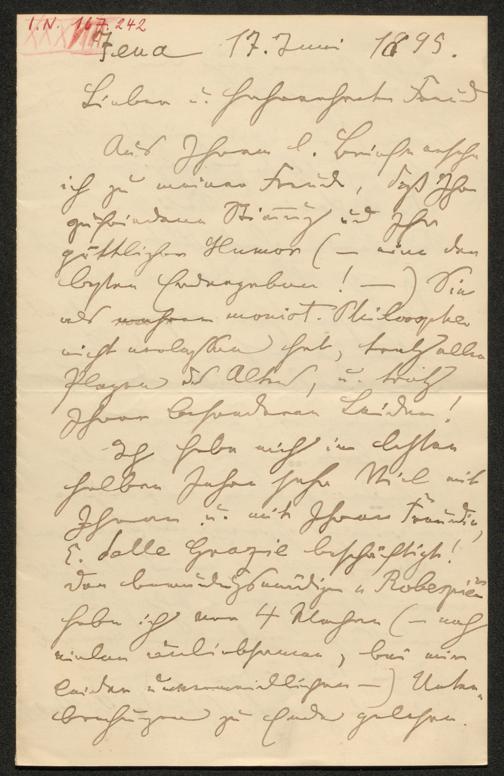 I.N. 167.242
Jena 17. Juni 1895.
Lieber u. hochverehrter Freund
Aus Ihrem l. Briefe ersehe
ich zu meiner Freude, daß Ihre
zufriedene Stimmung und Ihr
göttlicher Humor (— eine der
besten Erdengaben! —) Sie
als wahren monist. Philosophen
nicht verlassen hat, trotz allen
Plagen des Alters, u. trotz
Ihrer besonderen Leiden!
Ich habe mich im letzten
halben Jahre sehr Viel mit
Ihnen u. mit Ihrer Freundin,
E. delle Grazie beschäftigt!
Den bewundrungswürdigen "Robespierre"
habe ich vor 4 Wochen (— nach
vielen unliebsamen, bei mir
leider unvermeidlichen —) Unter-
brechungen zu Ende gelesen.